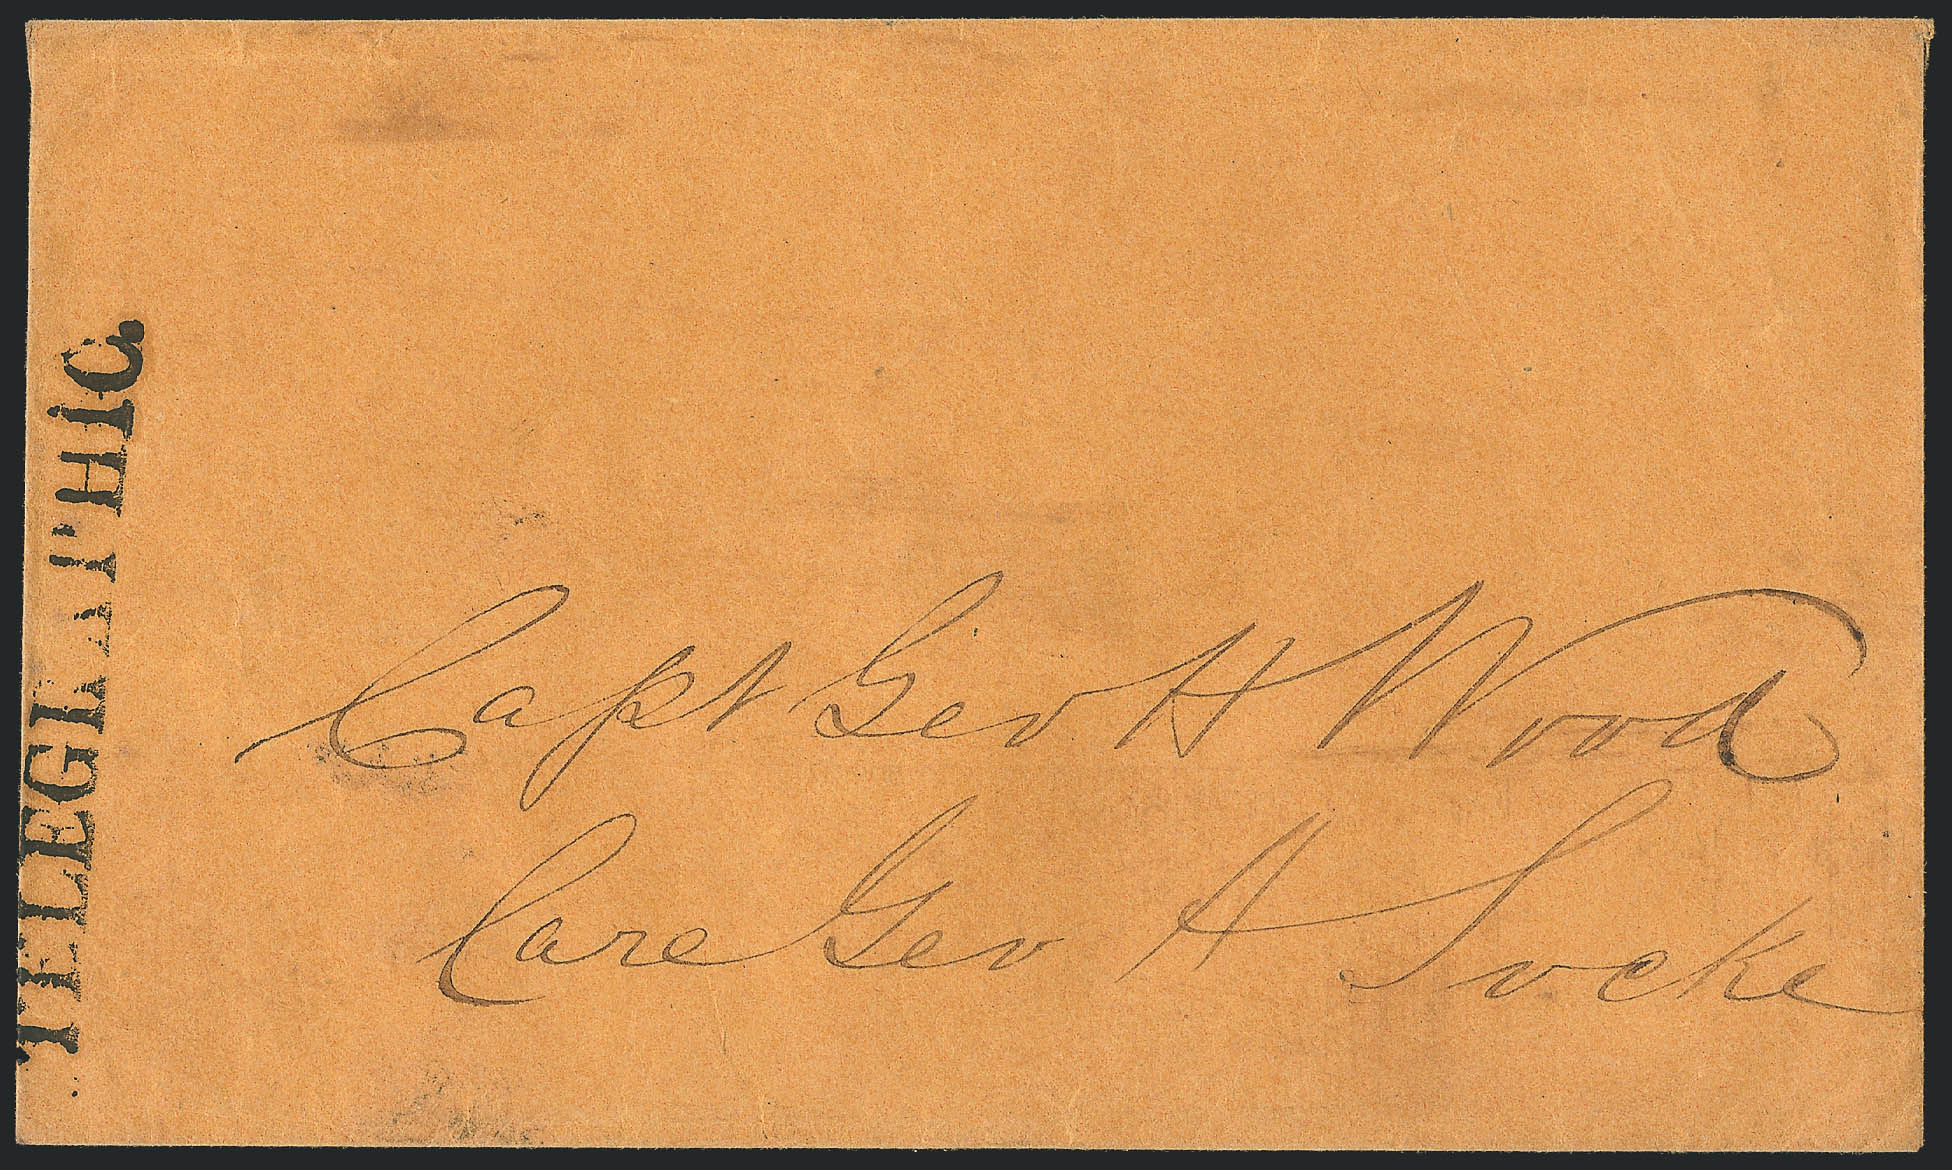 TELEGRAPHIC.
Capt Geo H Wood
Care Geo A Locke